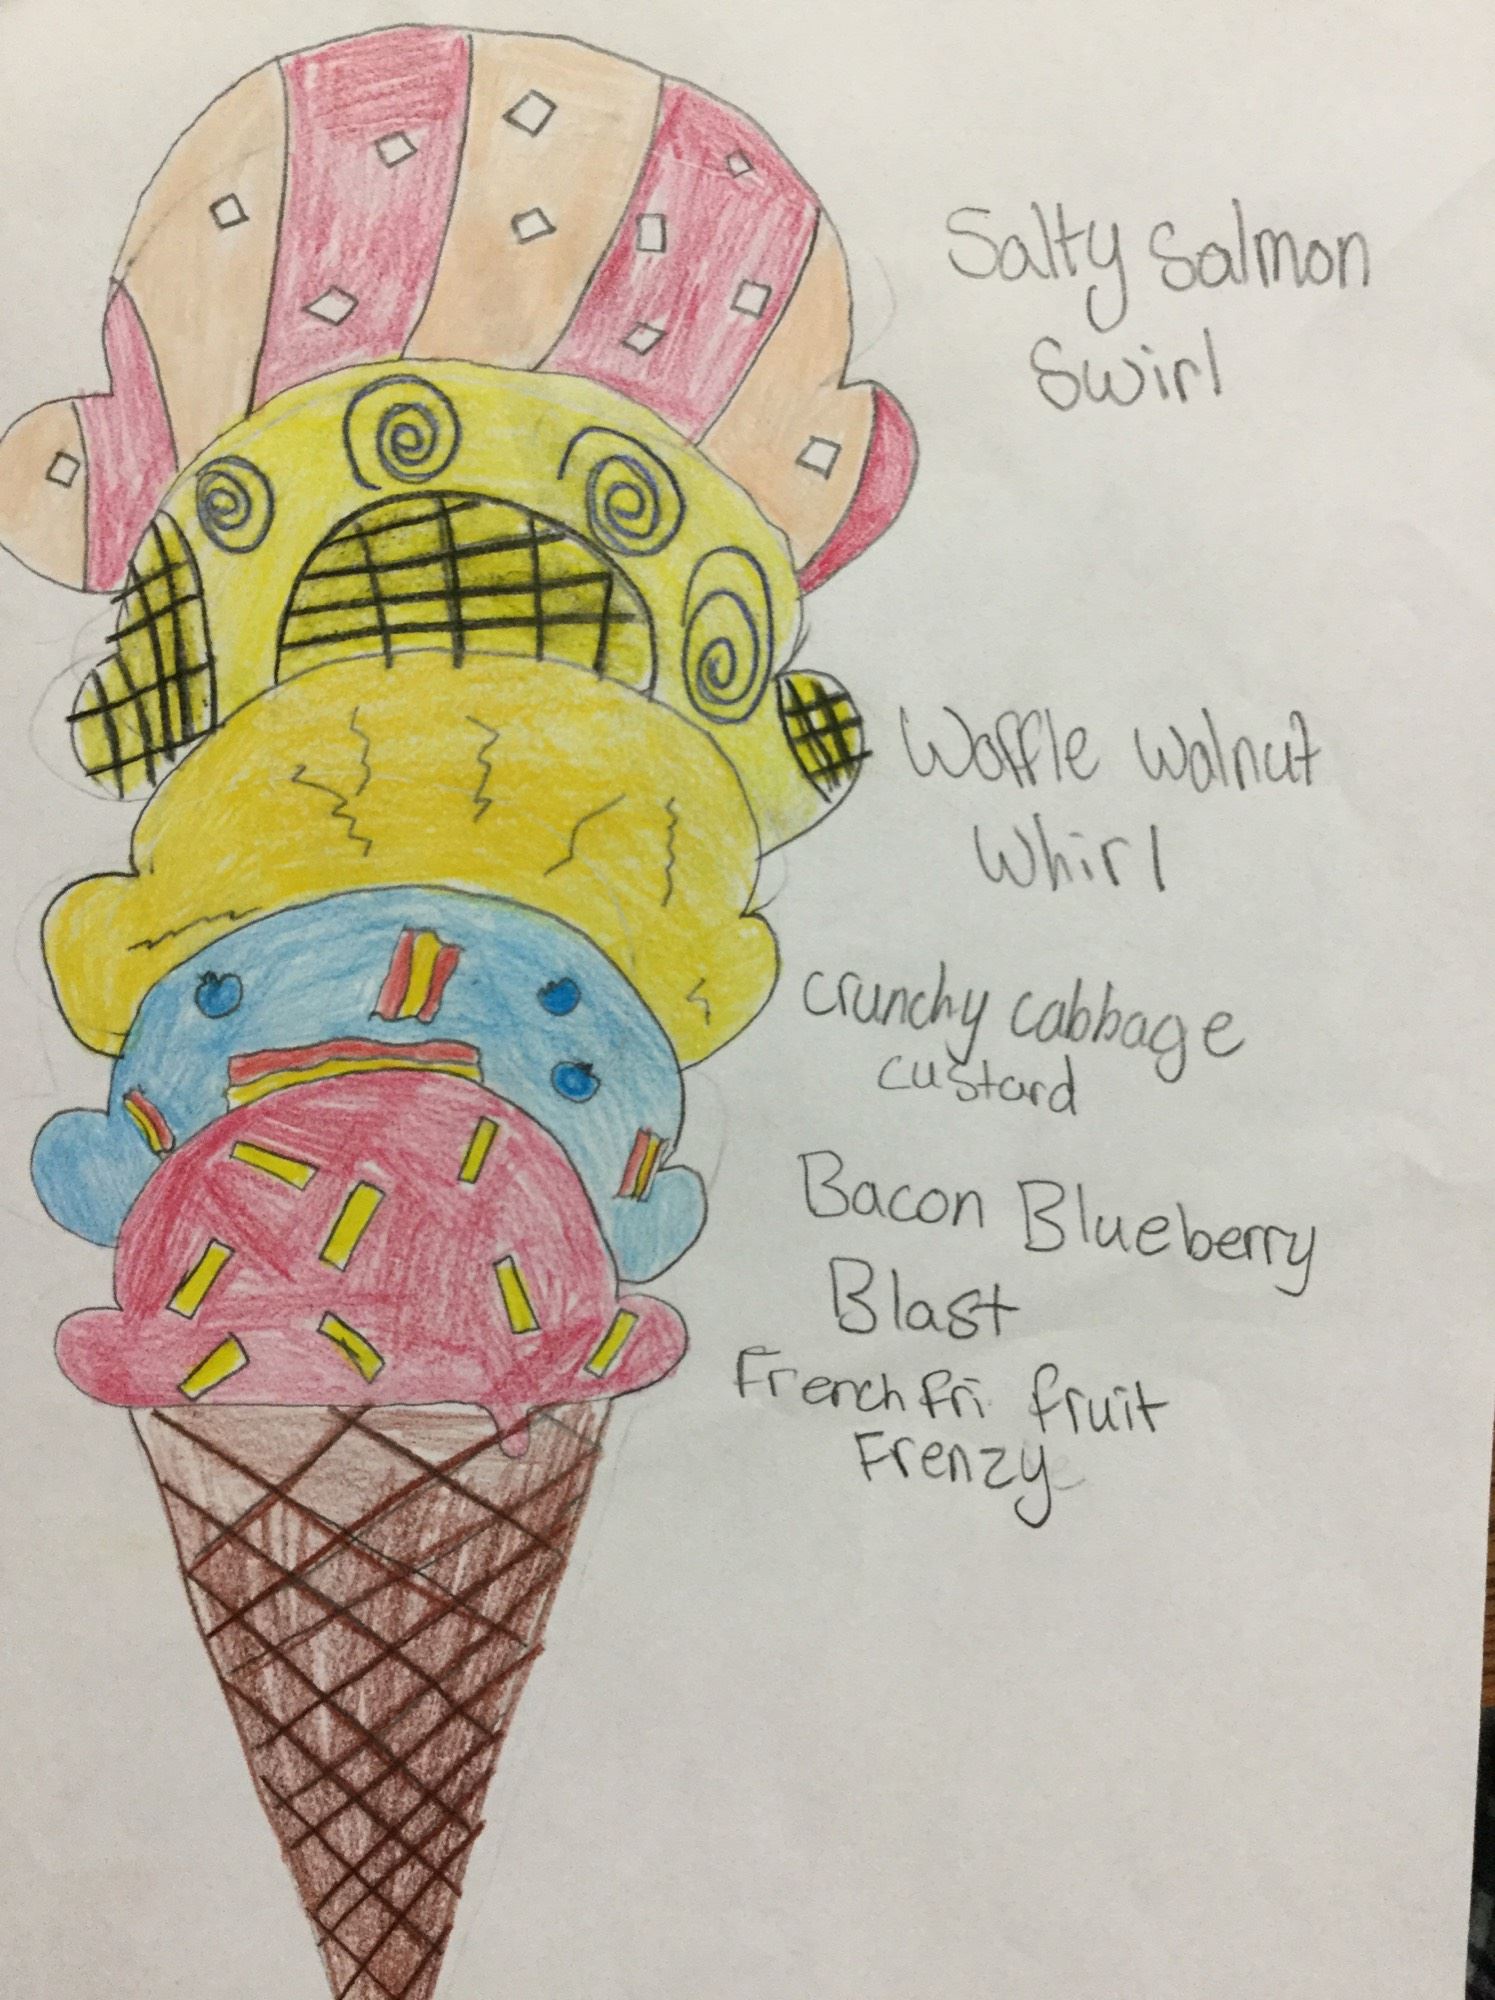 Salty Salmon
Swirl
Waffle Walnut
Whirl
crunchy cabbage
custard
Bacon Blueberry
Blast
French fri fruit
Frenzy